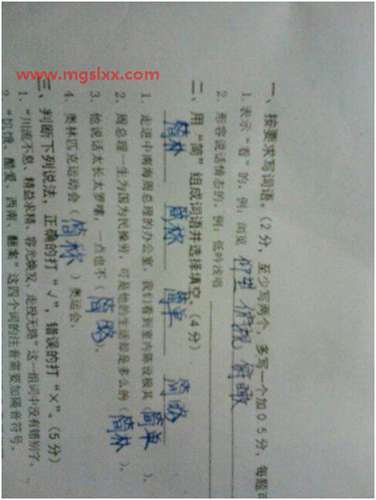 www.mgslxx.com
一、按要求写词语。(2分，至少写两个，多写一个加0.5分，每题
1. 表示“看”的，例：阅览 仰望 俯视 俯瞰
2. 形容说话情态的，例：低吟浅唱
二、用“简”组成词语并选择填空。(4分)
简朴 简称 简单 简略
1. 走进中南海周总理的办公室，我们看到室内陈设极其(简单)。
2. 周总理一生为国为民操劳，可是他的生活却是多么的(简朴)
3. 他说话太长太罗嗦，一点也不(简略)。
4. 奥林匹克运动会(简称)奥运会。
三、判断下列说法，正确的打“√”，错误的打“×”。(5分)
1. “川流不息、精益求精、容光焕发、走投无路”这一组词中没有错别字。
2. “饥饿、酷爱、西南、翻案”这四个词的注音需要加隔音符号。